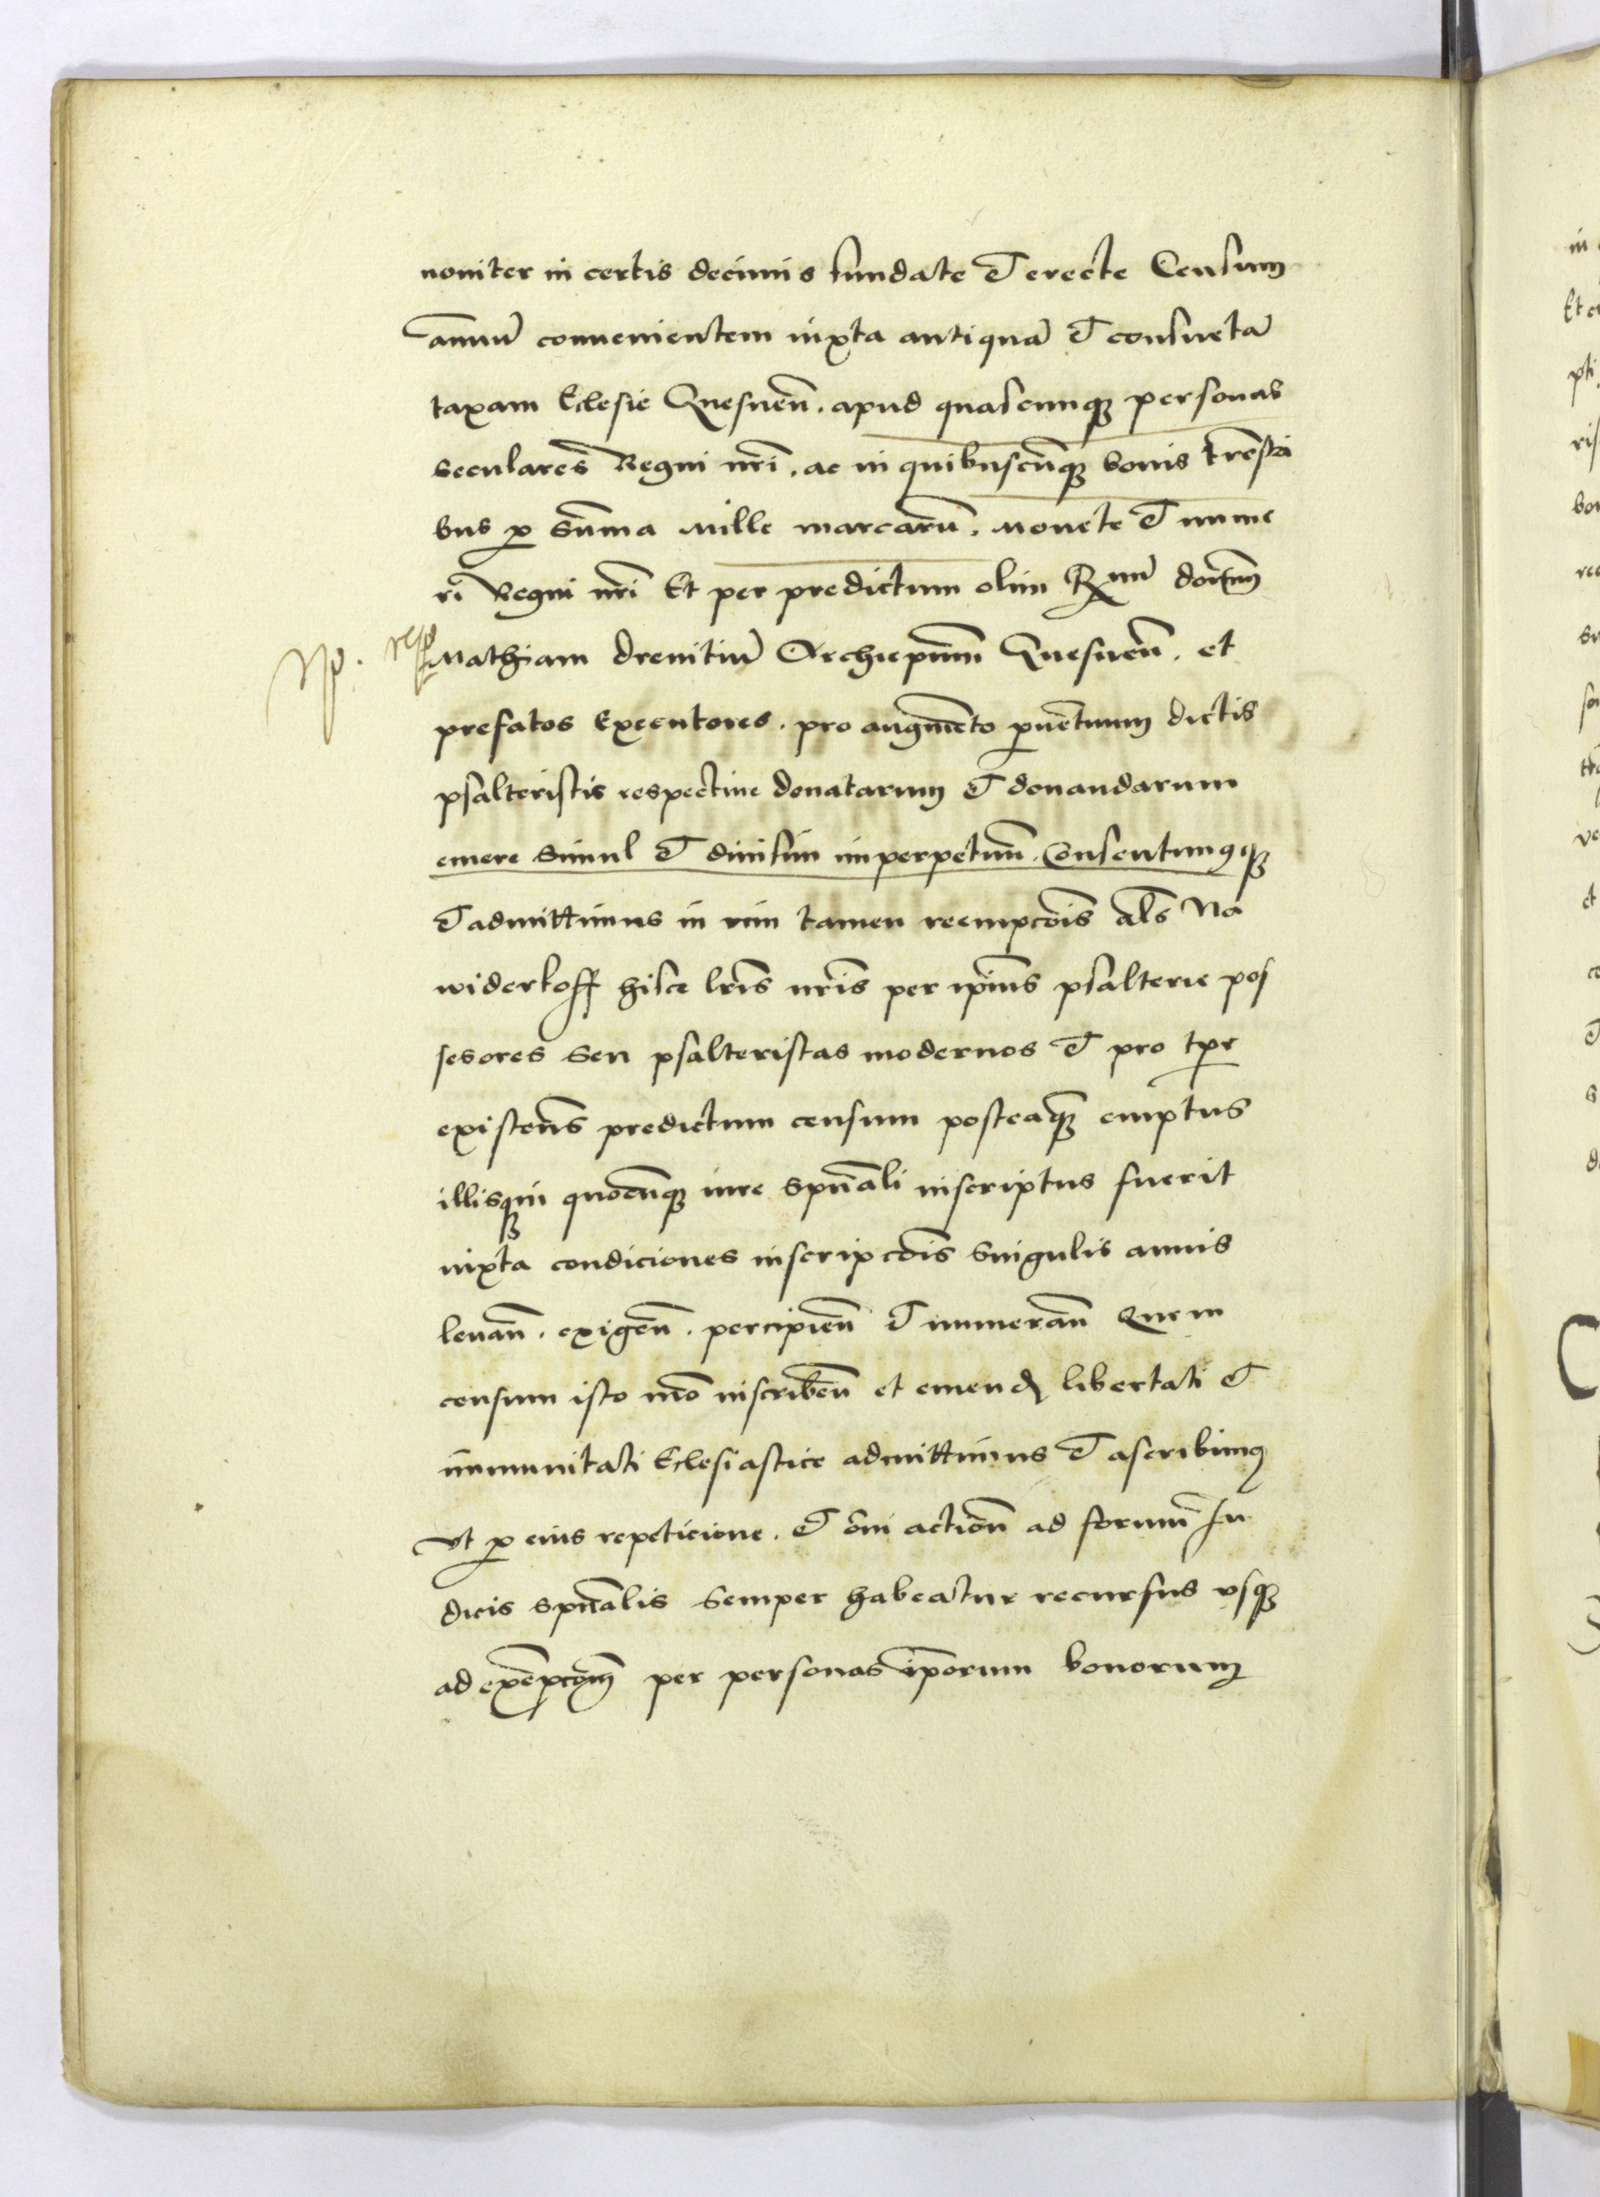 noviter in certis decimis fundate et erecte Censum
annuū convenientem iuxta antiquā et consuetā
taxam Eclesie Gnesnen̄. apud quascunqꝫ personas
seculares Regni nr̄i. ac in quibuscūqꝫ bonis trēstri
bus ꝑ Sūma Mille marcarū. Monete et nume
ri Regni nr̄i Et per predictum olim R̄mū dominū
Mathiam drevitiū Archiepūm Gnesnen̄. et
prefatos Executores. pro augmēto ꝓvētuum dictis
psalteristis respective donatarum et donandarum
emere Simul et divisim imperpetuū. Consentimusqꝫ
et admittimus in vim tamen reempcōis als̄ Na
widerkoff hisce lr̄is nr̄is per ip̄ius psalterie pos
sesores Seu psalteristas modernos et pro tpr̄e
existen̄s predictum censum posteaqꝫ emptus
illisqꝫ in quocūqꝫ iure Spūali inscriptus fuerit
iuxta condiciones inscripcōis Singulis annis
levan̄. exigen̄. percipien̄ et numeran̄ Quem
censum isto mō inscriben̄ et emend libertati et
immunitati Eclesiastice admittimus et ascribimus
Ut ꝑ eius repeticione. et om̄i actiōn ad forum Iu
dicis Spūalis Semper habeatur recursus usqꝫ
ad exēpcōm per personas ip̄orum bonorum